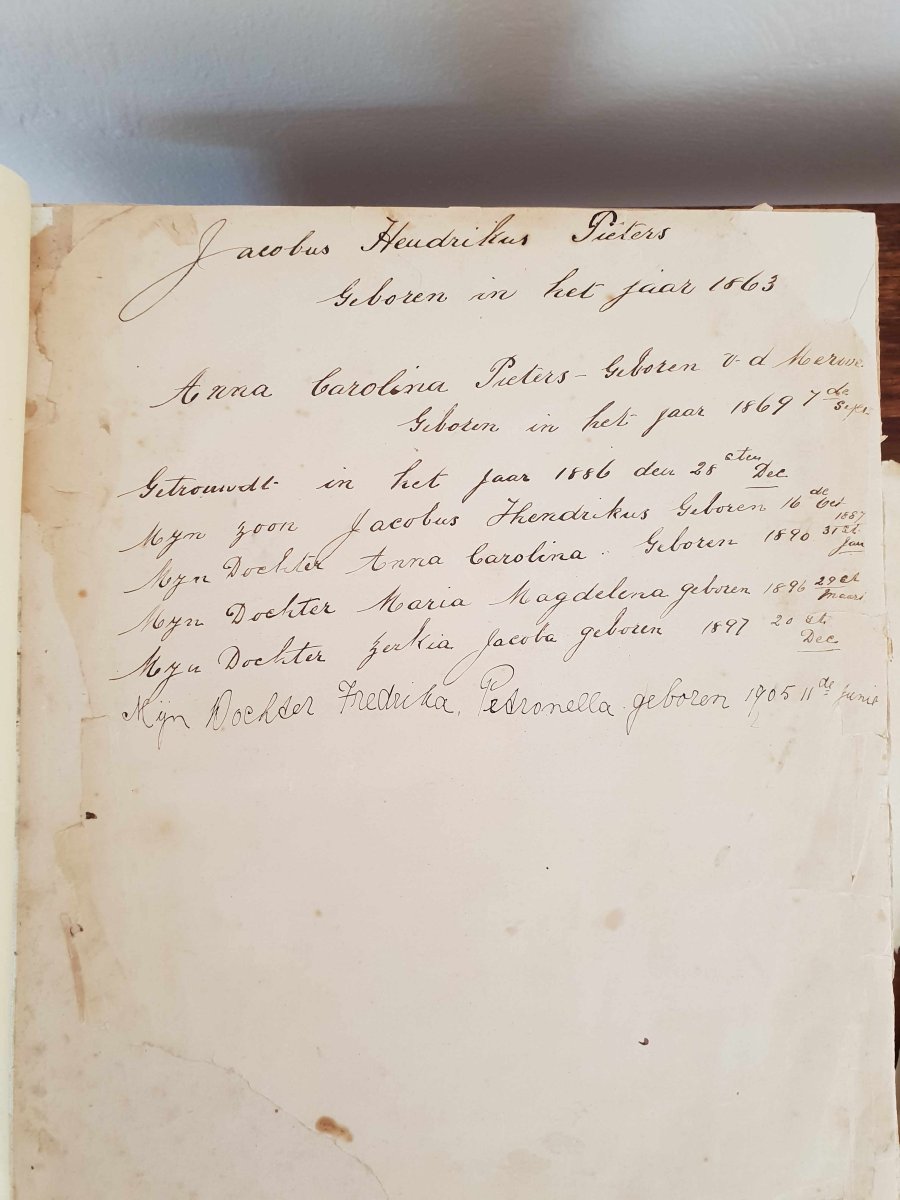 Jacobus Hendrikus Pieters
Geboren in het jaar 1863
Anna Carolina Pieters - Geboren v. d Merwe
Geboren in het jaar 1869 7de Sept
Getrouwdt in het Jaar 1886 den 28sten Dec
Myn zoon Jacobus Hendrikus Geboren 16de Oct 1887
Myn Dochter Anna Carolina. Geboren 1890 31st Jan
Myn Dochter Maria Magdelena geboren 1896 29st Maart
Myn Dochter Zerkia Jacoba geboren 1897 20ste Dec
Mijn Dochter Fredrika Petronella geboren 1905 11de Junie